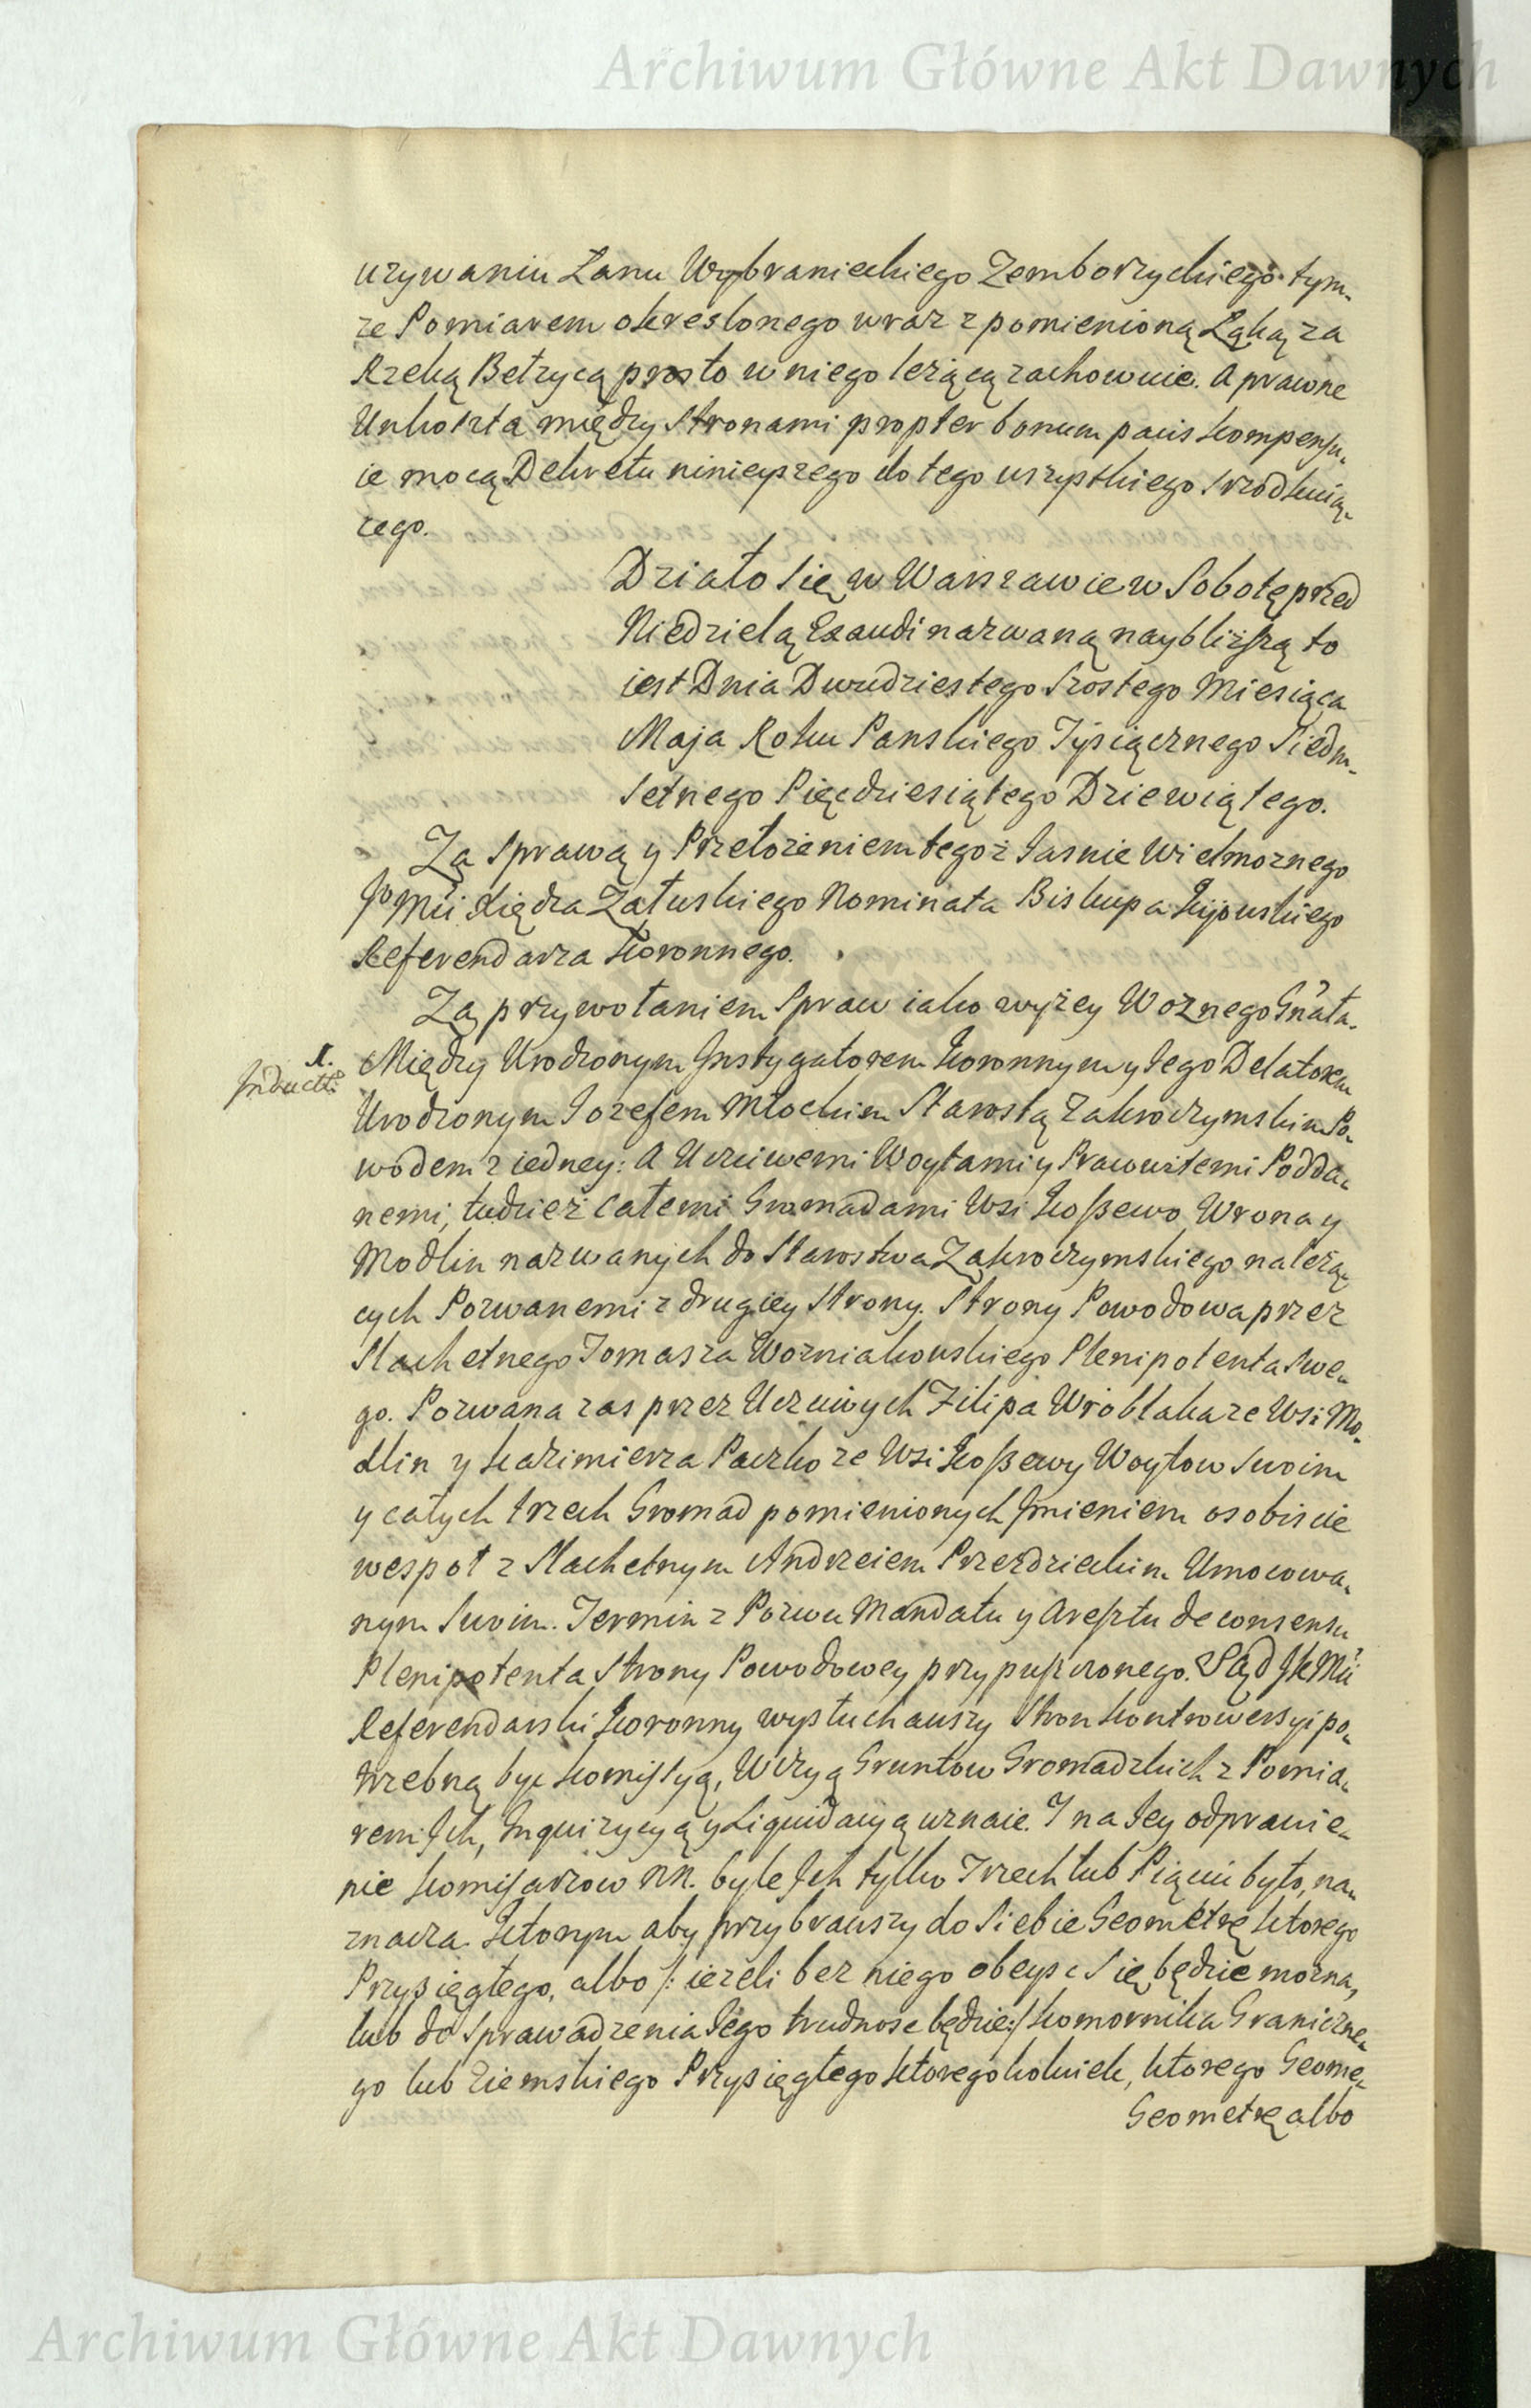 Archiwum Główne Akt Dawnych
uzywaniu Łanu Wybranieckiego Zemborzyckiego tym-
ze Pomiarem okreslonego wraz z pomienioną Łąką za
Rzeką Betzycą prosto w niego lezącą zachowuie. A prawne
Unkoszta między Stronami propter bonum pacis kompensu-
ie mocą Dekretu ninieyszego do tego wszystkiego srzodkuią-
cego.
Działo Się w Warszawie w Sobotę przed
Niedzielą Exaudi nazwaną naybliższą to
iest Dnia Dwudziestego Szostego Miesiąca
Maja Roku Panskiego Tysiącznego Siedm-
setnego Pięcdziesiątego Dziewiątego.
Za Sprawą y Przełozeniem tegoż Jasnie Wielmoznego
Jo Mci Xiędza Załuskiego Nominata Biskupa Kijowskiego
Referendarza Koronnego.
Za przywołaniem Spraw iako wyżey Woznego Gnãła.
X.
Inductã
Między Urodzonym Instygatorem Koronnym y Jego Delatorem
Urodzonym Jozefem Młockim Starostą Zakroczymskim Po-
wodem z iedney: A Uczciwemi Woytami y Prawowitemi Podda-
nemi, tudzież całemi Gromadami Wsi Koßewo Wrona y
Modlin nazwanych do Starostwa Zakroczymskiego nalezą-
cych Pozwanemi z drugiey Strony. Strony Powodowa przez
Slachetnego Tomasza Wozniakowskiego Plenipotenta Swe-
go. Pozwana zas przez Uczciwych Filipa Wroblaka ze Wsi Mo-
dlin y Kazimierza Paczko ze Wsi Koßewy Woytow Swoim
y całych trzech Gromad pomienionych Imieniem osobiscie
wespoł z Slachetnym Andrzeiem Przezdzieckim Umocowa-
nym Swoim. Termin z Pozwu Mandatu y Aresztu de consensu
Plenipotenta Strony Powodowey przypuszczonego. Sąd JkMci
Referendarski Koronny wysłuchawszy Stron Kontrowersyi po-
trzebną być Kommissyą, Wizyą Gruntow Gromadzkich z Pomia-
rem Ich, Inquizycyą y Liquidacyą uznaie. I na Jey odprawie-
nie Komisarzow NN. byle Ich tylko Trzech lub Piąciu było, na-
znacza. Ktorym aby przybrawszy do Siebie Geometrę ktorego
Przysięgłego, albo /: iezeli bez niego obeysc Się będzie mozna,
lub do Sprawadzenia Jego trudnosc będzie :/ Komornika Graniczne-
go lub Ziemskiego Przysięgłego ktoregokolwiek, ktorego Geome-
Geometrę albo
Archiwum Główne Akt Dawnych